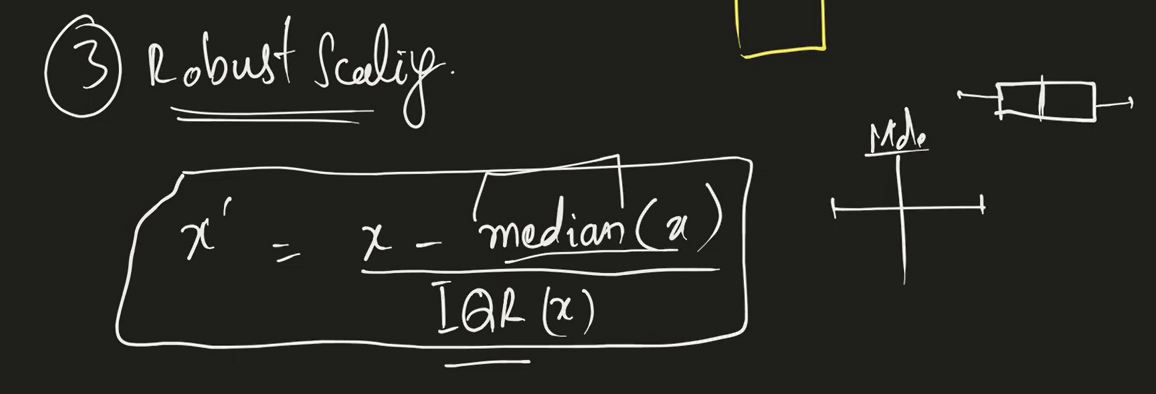 ③ Robust Scaling.
Mdn
x' = x - median(x)
IQR (x)